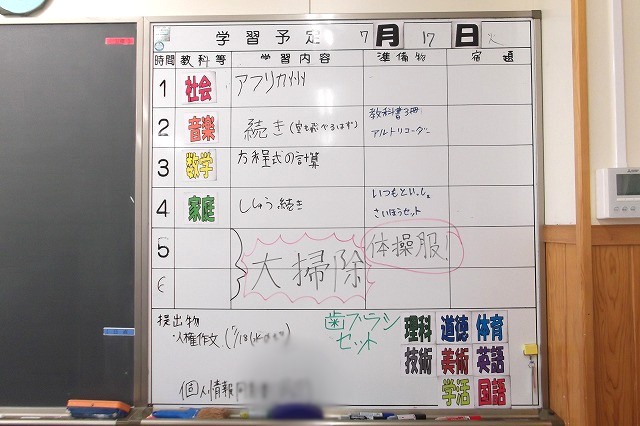 学習予定 7月17日火
時間 教科等 学習内容 準備物 宿題
1 社会 アフリカ州
2 音楽 続き(空も飛べるはず) 教科書3冊
アルトリコーダー
3 数学 方程式の計算
4 家庭 ししゅう続き いつもといっしょ
さいほうセット
5 大掃除 体操服!
6
提出物
・人権作文(7/18(水)まで)
個人情報
歯ブラシ
セット
理科 道徳 体育
技術 美術 英語
学活 国語